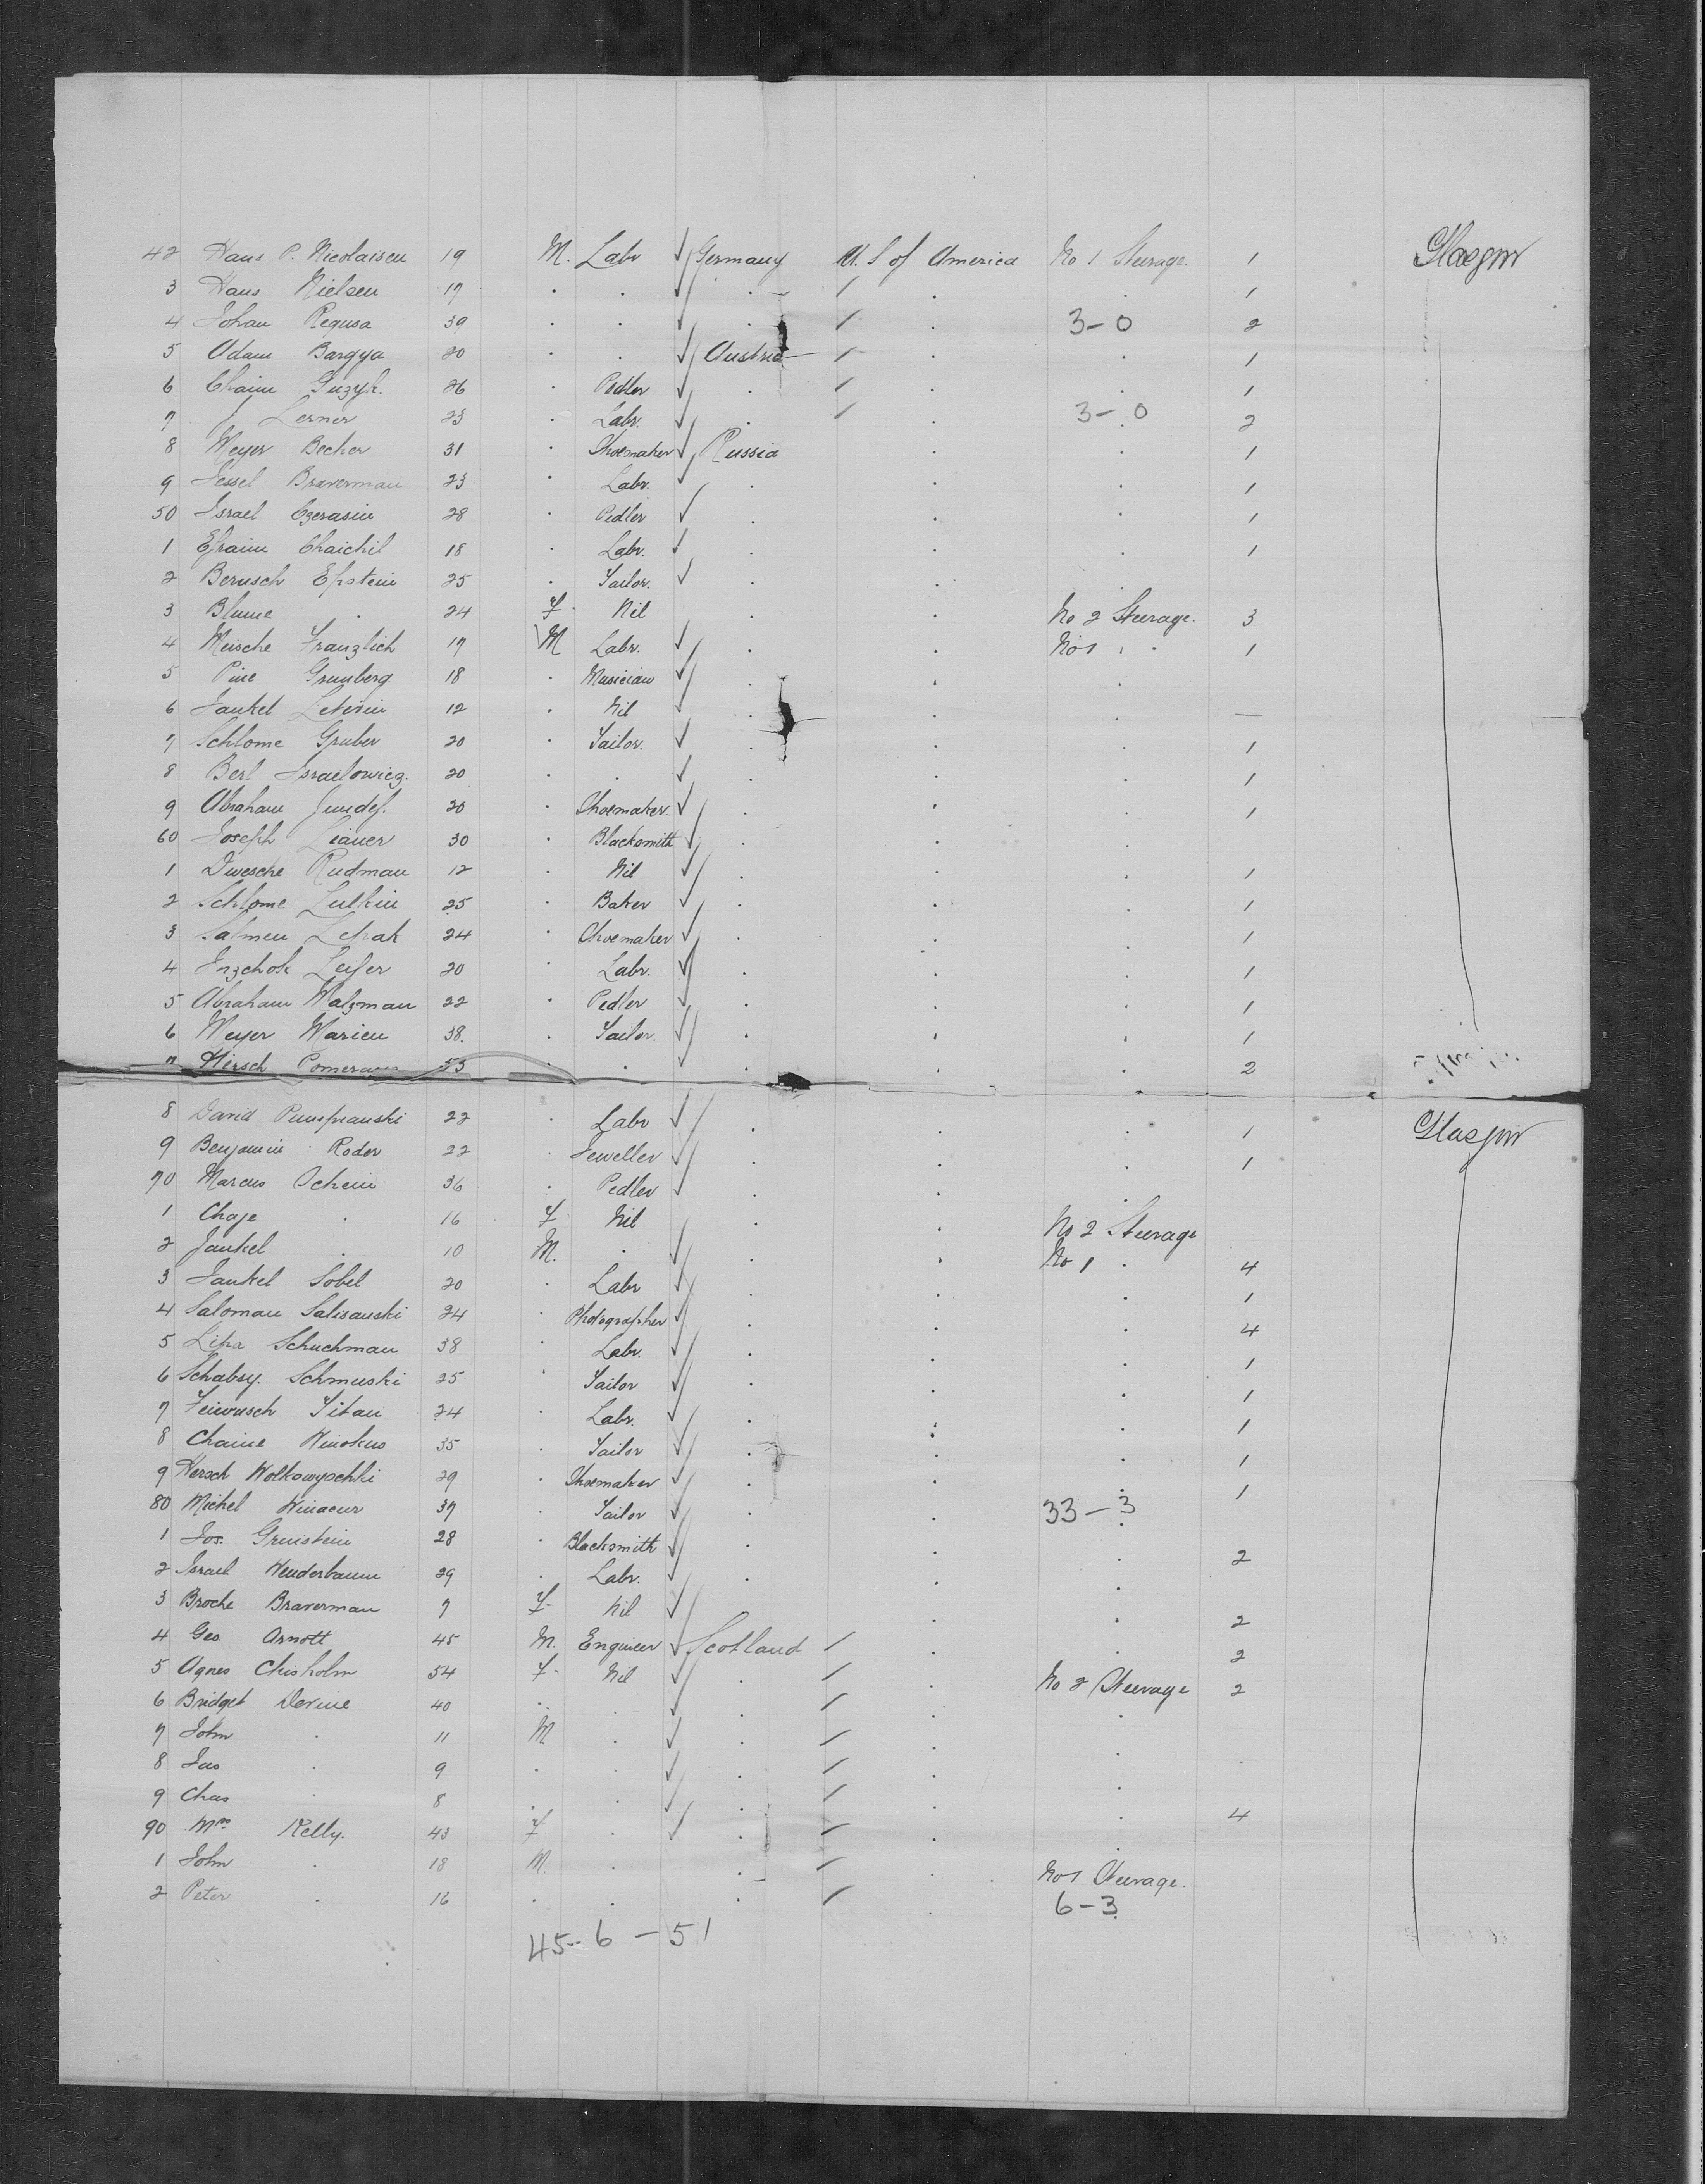 42 Hans P. Nicolaisen 19 M. Labr Germany U. S of America No 1 Steerage. 1 Glasgow
3 Hans Nielsen 17 . . . . . 1
4 Johan Regusa 39 . . . . 3-0 2
5 Adam Bargya 20 . . Austria . . 1
6 Chaim Guzyk. 26 . Pedler . . . 1
7 J Lerner 23 . Labr. . . 3-0 2
8 Meyer Becker 31 . Shoemaker Russia . . 1
9 Jessel Braverman 23 . Labr. . . . 1
50 Israel Czerasin 28 . Pedler . . . 1
1 Efraim Chaichil 18 . Labr. . . . 1
2 Berusch Epstein 25 . Tailor. . . .
3 Blume . 24 F. Nil . . No 2 Steerage. 3
4 Meische Franzlich 17 M Labr. . . No 1 . . 1
5 Pine Grunberg 18 . Musician . . .
6 Jankel 12 . Nil . . . —
7 Schlome Gruber 20 . Tailor. . . . 1
8 Berl Israelowicz. 20 . . . . . 1
9 Abraham 20 . Shoemaker. . . . 1
60 Joseph 30 . Blacksmith . . .
1 Dwesche Rudman 12 . Nil . . . 1
2 Schlome Lulkin 25 . Baker . . . 1
3 Salmen Lepak 24 . Shoemaker . . . 1
4 Leifer 20 . Labr. . . . 1
5 Abraham Malzman 22 . Pedler . . . 1
6 Meyer Marien 38. . Tailor. . . . 1
7 Hirsch 53 . . . . . 2
8 David 22 . Labr . . . 1 Glasgow
9 Benjamin Roder 22 . Jeweller . . . 1
70 Marcus Schein 36 . Pedler . . .
1 Chaje . 16 F Nil . . No 2 Steerage
2 Jankel . 10 M. . . . No 1 . 4
3 Jankel Sobel 20 . Labr . . . 1
4 Saloman Salisauski 24 . Photographer . . . 4
5 Lipa Schuchman 38 . Labr. . . . 1
6 Schabsy. Schmuski 25 . Tailor . . . 1
7 Feiwusch Titan 24 . Labr. . . . 1
8 Chaine Winokus 35 . Tailor . . . 1
9 Hersch Wolkowyschki 29 . Shoemaker . . . 1
80 Michel 37 . Tailor . . 33-3
1 Jos. Grunstein 28 . Blacksmith . . . 2
2 Israel Wenderbaum 29 . Labr. . . .
3 Broche Braverman 7 F Nil . . 2
4 Geo Arnott 45 M. Engineer Scotland . . 2
5 Agnes Chisholm 54 F. Nil . . No 2 Steerage 2
6 Bridget Devine 40 . . . . .
7 John . 11 M . . . .
8 Jas . 9 . . . . .
9 Chas . 8 . . . . . 4
90 Mrs Kelly. 43 F . . . .
1 John . 18 M. . . . No 1 Steerage.
2 Peter . 16 . . . . 6-3
45-6-51